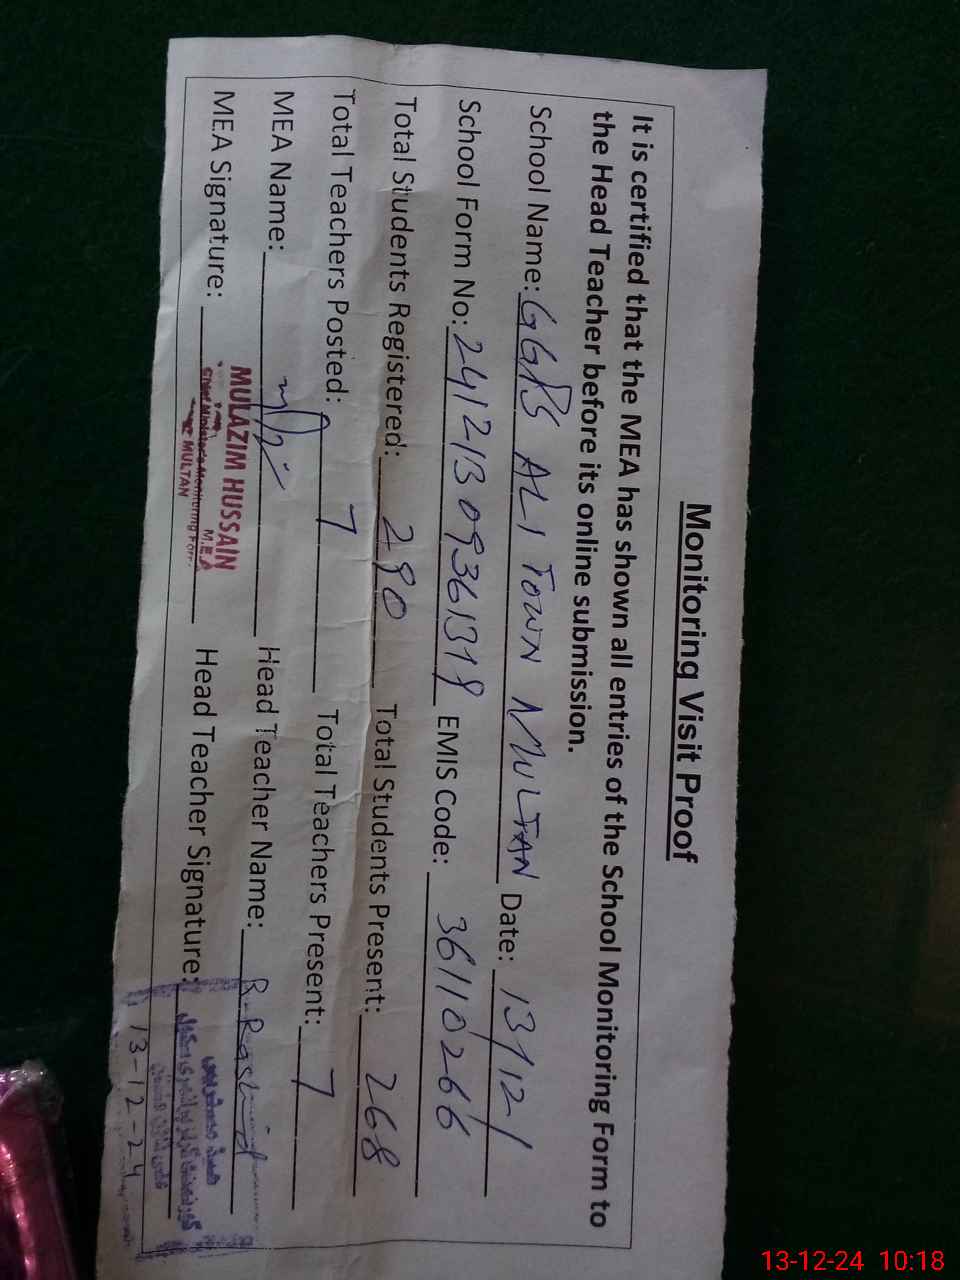 Monitoring Visit Proof
It is certified that the MEA has shown all entries of the School Monitoring Form to
the Head Teacher before its online submission.
School Name: GGPS ALI TOWN MULTAN Date: 13/12/
School Form No: 24121309361318 EMIS Code: 36110266
Total Students Registered: 290 Total Students Present: 268
Total Teachers Posted: 7 Total Teachers Present: 7
MEA Name: Head Teacher Name: R. Rashid
MULAZIM HUSSAIN
M.E.A
Chief Minister's Monitoring Force
MULTAN
MEA Signature: Head Teacher Signature:
13-12-24
13-12-24 10:18